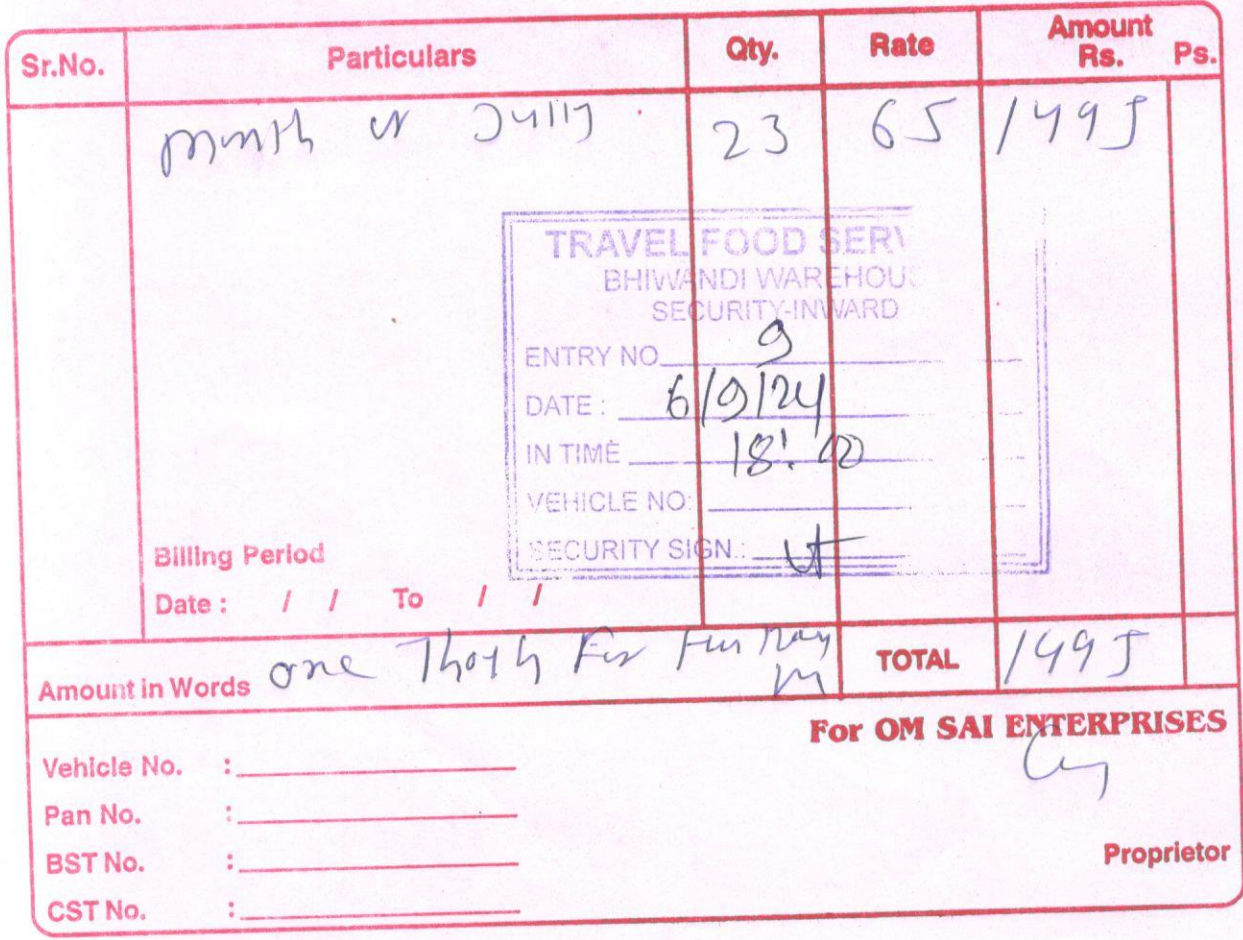 Sr.No. Particulars Qty. Rate Amount Rs. Ps.
Month of Jully 23 65 1495
TRAVEL FOOD SERV
BHIWANDI WAREHOUS
SECURITY-INWARD
ENTRY NO 9
DATE : 6/9/24
IN TIME 18:00
VEHICLE NO:
SECURITY SIGN.:
Billing Period
Date : / / To / /
Amount in Words one TOTAL 1495
For OM SAI ENTERPRISES
Vehicle No. :
Pan No. :
BST No. :
CST No. :
Proprietor